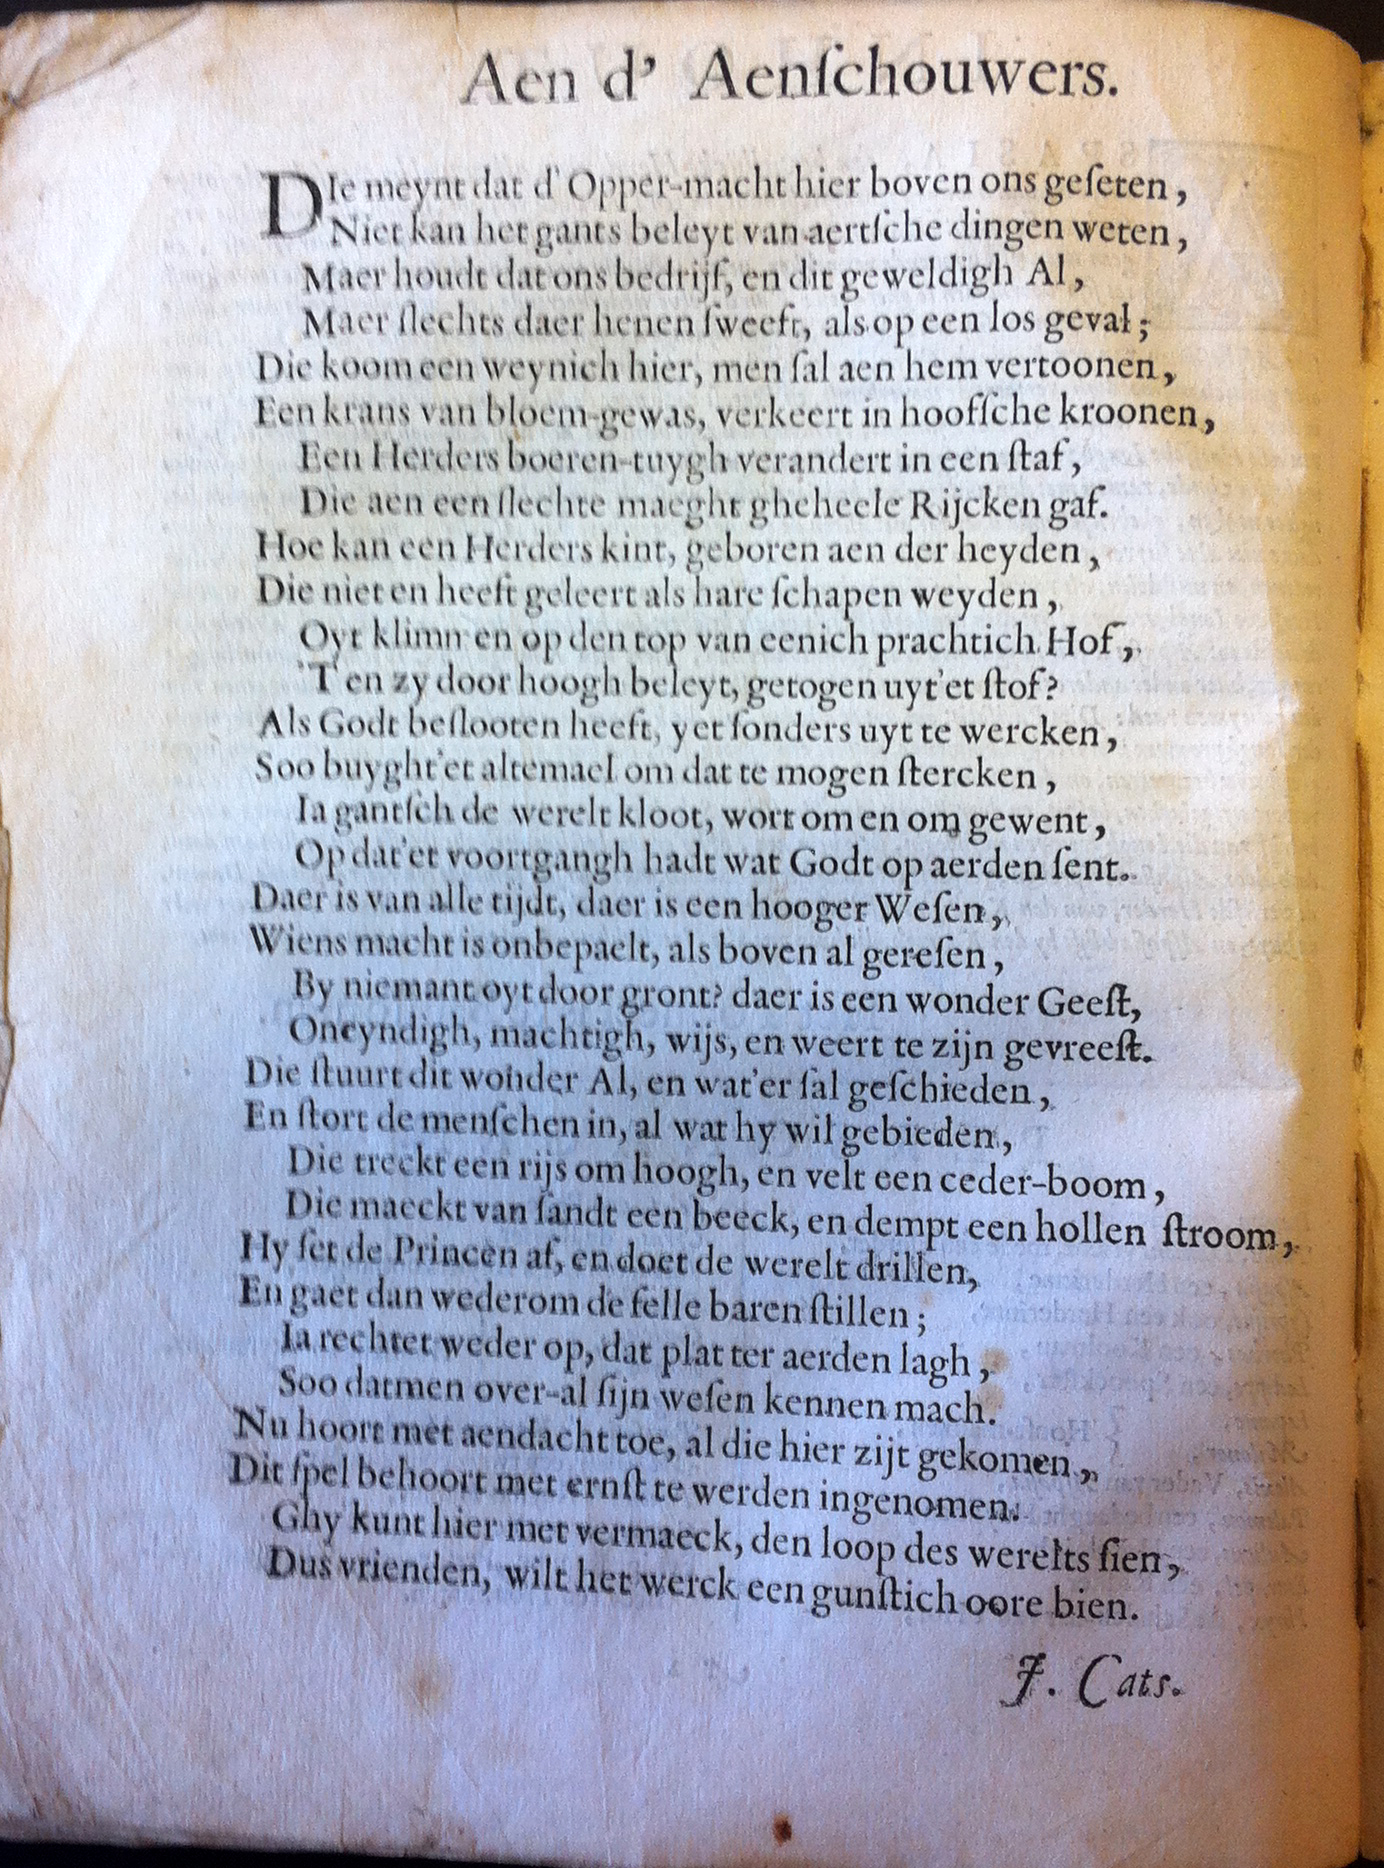 Aen d' Aenſchouwers.
DIe meynt dat d' Opper-macht hier boven ons geſeten,
Niet kan het gants beleyt van aertſche dingen weten,
Maer houdt dat ons bedrijf, en dit geweldigh Al,
Maer ſlechts daer henen ſweeft, als op een los geval;
Die koom een weynich hier, men ſal aen hem vertoonen,
Een krans van bloem-gewas, verkeert in hoofſche kroonen,
Een Herders boeren-tuygh verandert in een ſtaf,
Die aen een ſlechte maeght gheheele Rijcken gaf.
Hoe kan een Herders kint, geboren aen der heyden,
Die niet en heeft geleert als hare ſchapen weyden,
Oyt klimmen op den top van eenich prachtich Hof,
'T en zy door hoogh beleyt, getogen uyt'et ſtof?
Als Godt beſlooten heeft, yet ſonders uyt te wercken,
Soo buyght'et altemael om dat te mogen ſtercken,
Ia gantſch de werelt kloot, wort om en om gewent,
Op dat'et voortgangh hadt wat Godt op aerden ſent.
Daer is van alle tijdt, daer is een hooger Weſen,
Wiens macht is onbepaelt, als boven al gereſen,
By niemant oyt door gront? daer is een wonder Geeſt,
Oneyndigh, machtigh, wijs, en weert te zijn gevreeſt.
Die ſtuurt dit wonder Al, en wat'er ſal geſchieden,
En ſtort de menſchen in, al wat hy wil gebieden,
Die treckt een rijs om hoogh, en velt een ceder-boom,
Die maeckt van ſandt een beeck, en dempt een hollen ſtroom,
Hy ſet de Princen af, en doet de werelt drillen,
En gaet dan wederom de felle baren ſtillen;
Ia rechtet weder op, dat plat ter aerden lagh,
Soo datmen over-al ſijn weſen kennen mach.
Nu hoort met aendacht toe, al die hier zijt gekomen,
Dit ſpel behoort met ernſt te werden ingenomen.
Ghy kunt hier met vermaeck, den loop des werelts ſien,
Dus vrienden, wilt het werck een gunſtich oore bien.
J. Cats.